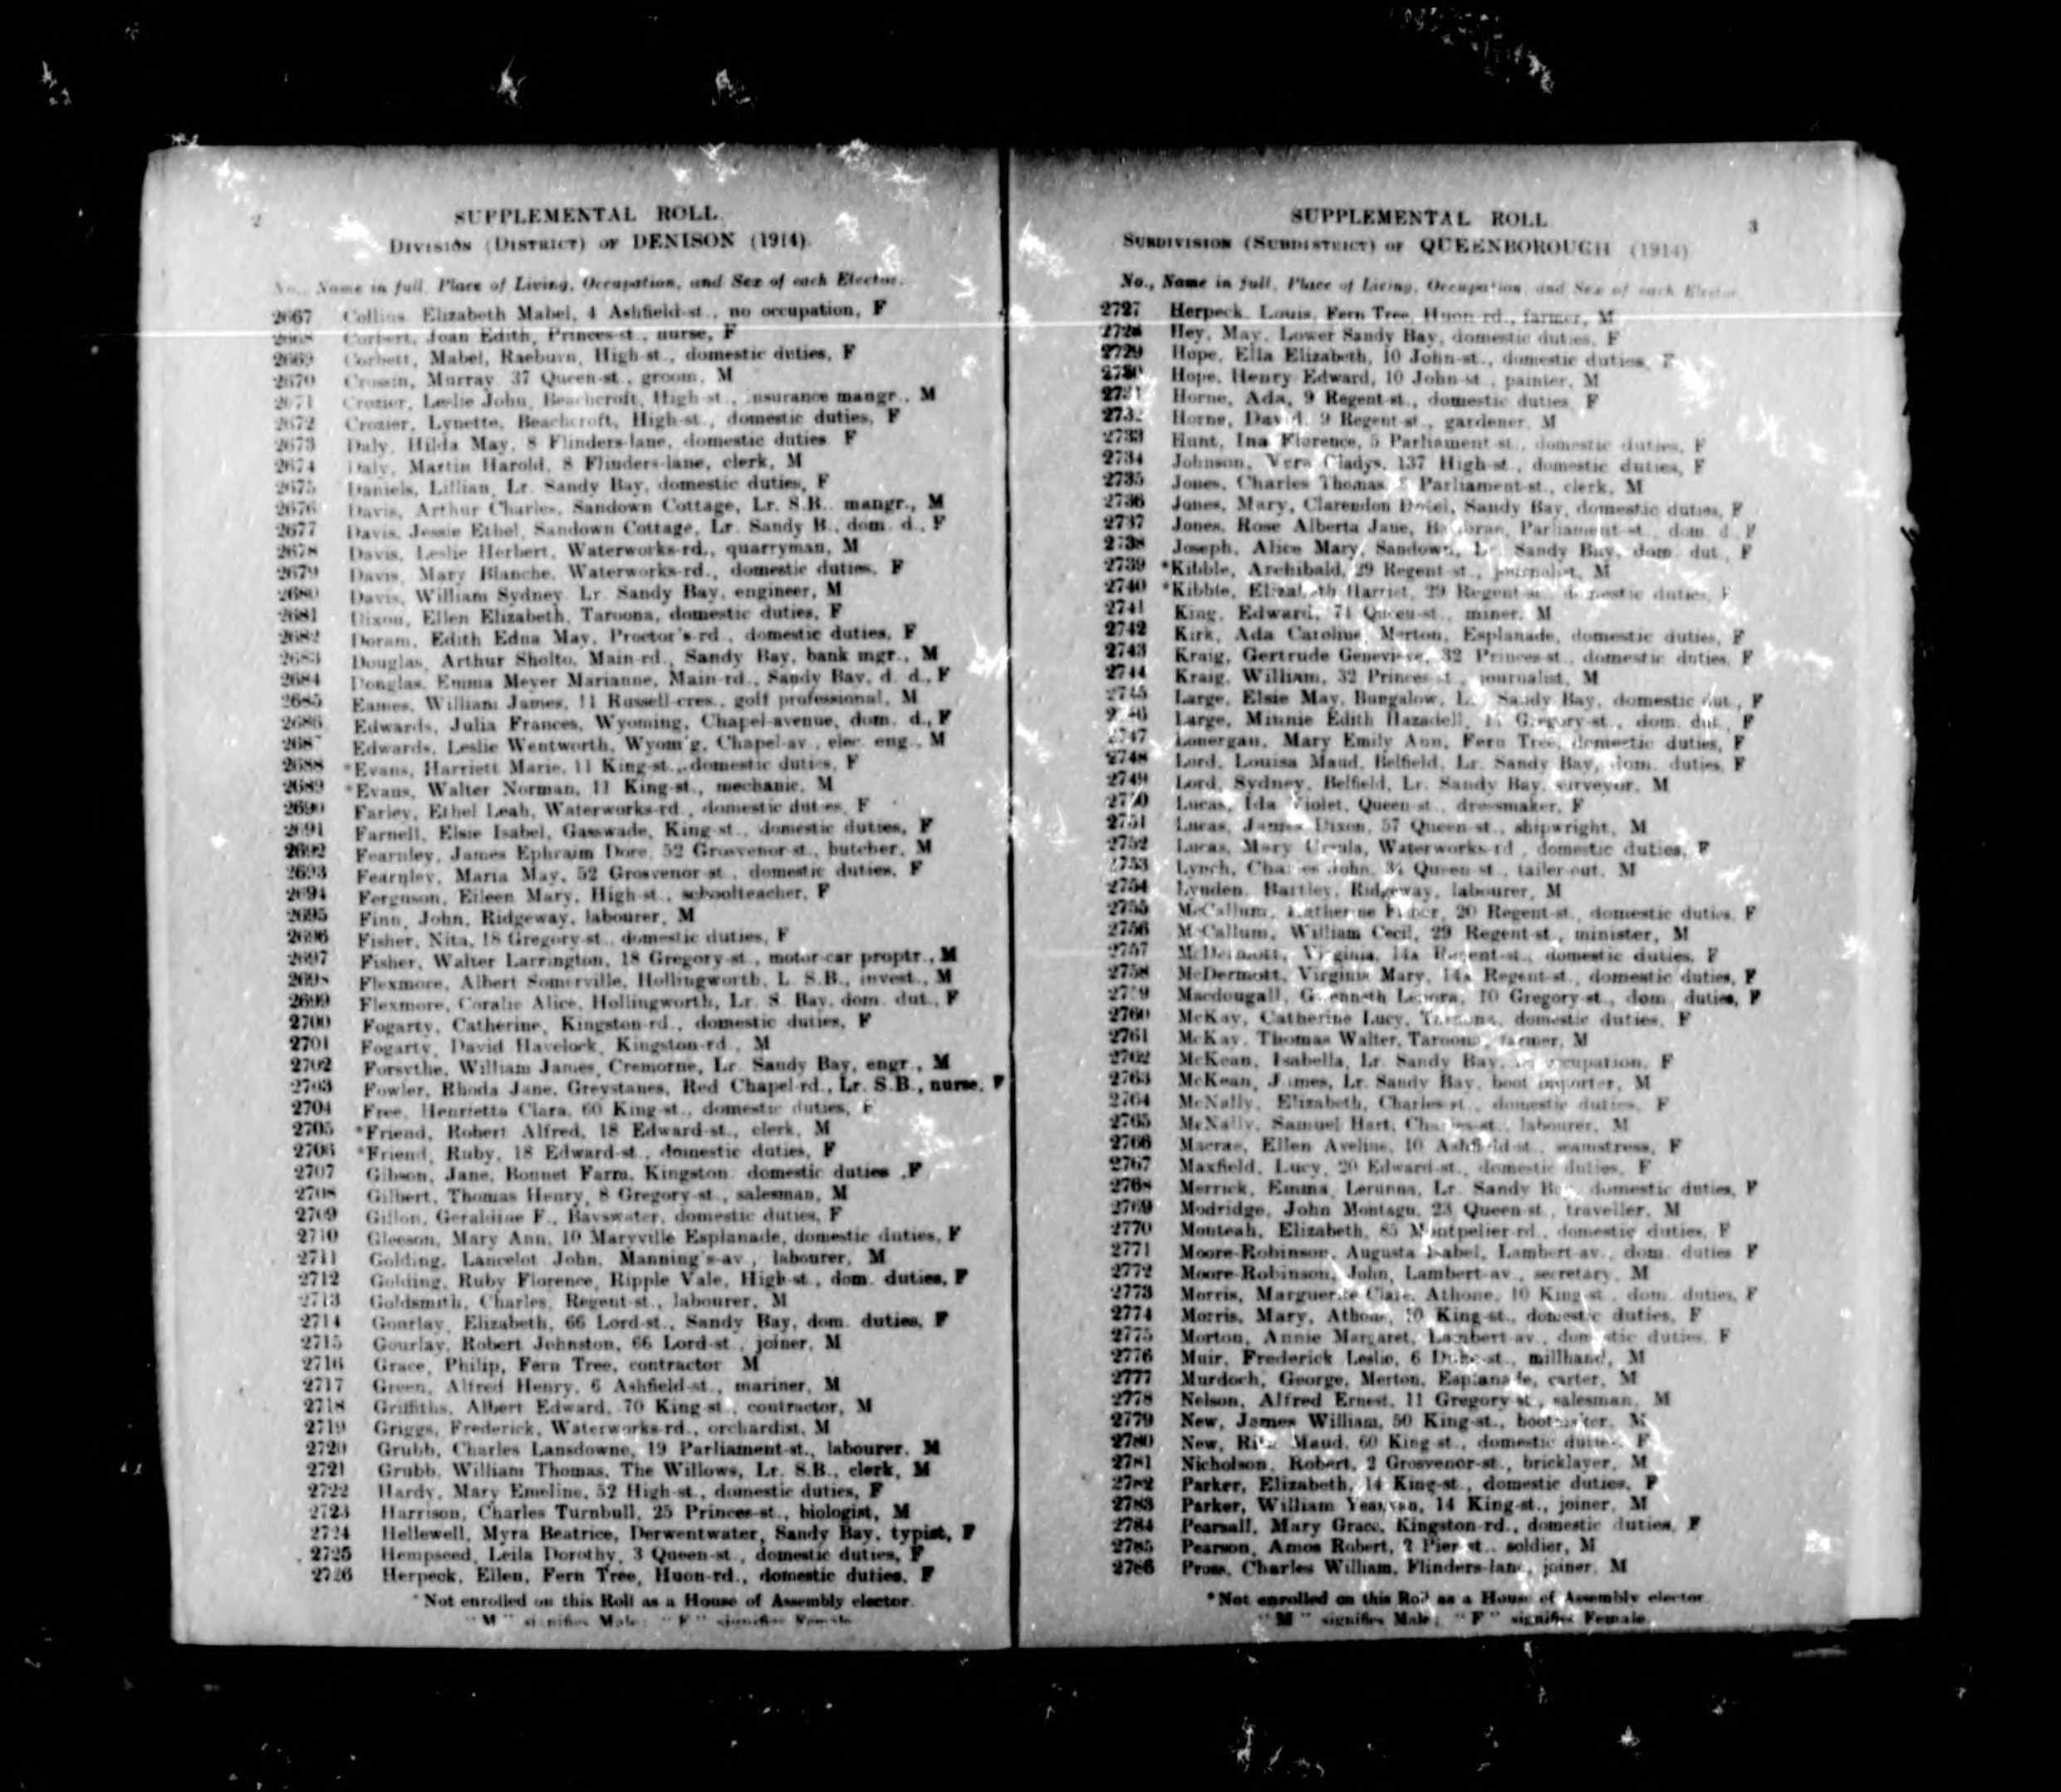 2
SUPPLEMENTAL ROLL
DIVISION (DISTRICT) OF DENISON (1914).
No., Name in full, Place of Living, Occupation, and Sex of each Elector.
2667 Collins, Elizabeth Mabel, 4 Ashfield-st., no occupation, F
2668 Corbert, Joan Edith, Princes-st., nurse, F
2669 Corbett, Mabel, Raeburn, High-st., domestic duties, F
2670 Crossin, Murray, 37 Queen-st., groom, M
2671 Crozier, Leslie John, Beachcroft, High-st., insurance mangr., M
2672 Crozier, Lynette, Beachcroft, High-st., domestic duties, F
2673 Daly, Hilda May, 8 Flinders-lane, domestic duties, F
2674 Daly, Martin Harold, 8 Flinders-lane, clerk, M
2675 Daniels, Lillian, Lr. Sandy Bay, domestic duties, F
2676 Davis, Arthur Charles, Sandown Cottage, Lr. S.B., mangr., M
2677 Davis, Jessie Ethel, Sandown Cottage, Lr. Sandy B., dom. d., F
2678 Davis, Leslie Herbert, Waterworks-rd., quarryman, M
2679 Davis, Mary Blanche, Waterworks-rd., domestic duties, F
2680 Davis, William Sydney, Lr. Sandy Bay, engineer, M
2681 Dixon, Ellen Elizabeth, Taroona, domestic duties, F
2682 Doram, Edith Edna May, Proctor's-rd., domestic duties, F
2683 Douglas, Arthur Sholto, Main-rd., Sandy Bay, bank mgr., M
2684 Douglas, Emma Meyer Marianne, Main-rd., Sandy Bay, d. d., F
2685 Eames, William James, 11 Russell-cres., golf professional, M
2686 Edwards, Julia Frances, Wyoming, Chapel-avenue, dom. d., F
2687 Edwards, Leslie Wentworth, Wyom'g, Chapel-av., elec. eng., M
2688 *Evans, Harriett Marie, 11 King-st., domestic duties, F
2689 *Evans, Walter Norman, 11 King-st., mechanic, M
2690 Farley, Ethel Leah, Waterworks-rd., domestic duties, F
2691 Farnell, Elsie Isabel, Gasswade, King-st., domestic duties, F
2692 Fearnley, James Ephraim Dore, 52 Grosvenor-st., butcher, M
2693 Fearnley, Maria May, 52 Grosvenor-st., domestic duties, F
2694 Ferguson, Eileen Mary, High-st., schoolteacher, F
2695 Finn, John, Ridgeway, labourer, M
2696 Fisher, Nita, 18 Gregory-st., domestic duties, F
2697 Fisher, Walter Larrington, 18 Gregory-st., motor-car proptr., M
2698 Flexmore, Albert Somerville, Hollingworth, L. S.B., invest., M
2699 Flexmore, Coralie Alice, Hollingworth, Lr. S. Bay, dom. dut., F
2700 Fogarty, Catherine, Kingston-rd., domestic duties, F
2701 Fogarty, David Havelock, Kingston-rd., M
2702 Forsythe, William James, Cremorne, Lr. Sandy Bay, engr., M
2703 Fowler, Rhoda Jane, Greystanes, Red Chapel-rd., Lr. S.B., nurse, F
2704 Free, Henrietta Clara, 60 King-st., domestic duties, F
2705 *Friend, Robert Alfred, 18 Edward-st., clerk, M
2706 *Friend, Ruby, 18 Edward-st., domestic duties, F
2707 Gibson, Jane, Bonnet Farm, Kingston, domestic duties ,F
2708 Gilbert, Thomas Henry, 8 Gregory-st., salesman, M
2709 Gillon, Geraldine F., Bayswater, domestic duties, F
2710 Gleeson, Mary Ann, 10 Maryville Esplanade, domestic duties, F
2711 Golding, Lancelot John, Manning's-av., labourer, M
2712 Golding, Ruby Florence, Ripple Vale, High-st., dom. duties, F
2713 Goldsmith, Charles, Regent-st., labourer, M
2714 Gourlay, Elizabeth, 66 Lord-st., Sandy Bay, dom. duties, F
2715 Gourlay, Robert Johnston, 66 Lord-st., joiner, M
2716 Grace, Philip, Fern Tree, contractor M
2717 Green, Alfred Henry, 6 Ashfield-st., mariner, M
2718 Griffiths, Albert Edward, 70 King-st., contractor, M
2719 Griggs, Frederick, Waterworks-rd., orchardist, M
2720 Grubb, Charles Lansdowne, 19 Parliament-st., labourer, M
2721 Grubb, William Thomas, The Willows, Lr. S.B., clerk, M
2722 Hardy, Mary Emeline, 52 High-st., domestic duties, F
2723 Harrison, Charles Turnbull, 25 Princes-st., biologist, M
2724 Hellewell, Myra Beatrice, Derwentwater, Sandy Bay, typist, F
2725 Hempseed, Leila Dorothy, 3 Queen-st., domestic duties, F
2726 Herpeck, Ellen, Fern Tree, Huon-rd., domestic duties, F
*Not enrolled on this Roll as a House of Assembly elector.
"M" signifies Male; "F" signifies Female.
SUPPLEMENTAL ROLL 3
SUBDIVISION (SUBDISTRICT) OF QUEENBOROUGH (1914)
No., Name in full, Place of Living, Occupation, and Sex of each Elector
2727 Herpeck, Louis, Fern Tree, Huon-rd., farmer, M
2728 Hey, May, Lower Sandy Bay, domestic duties, F
2729 Hope, Ella Elizabeth, 10 John-st., domestic duties, F
2730 Hope, Henry Edward, 10 John-st., painter, M
2731 Horne, Ada, 9 Regent-st., domestic duties, F
2732 Horne, David, 9 Regent-st., gardener, M
2733 Hunt, Ina Florence, 5 Parliament-st., domestic duties, F
2734 Johnson, Vera Gladys, 137 High-st., domestic duties, F
2735 Jones, Charles Thomas, Parliament-st., clerk, M
2736 Jones, Mary, Clarendon Hotel, Sandy Bay, domestic duties, F
2737 Jones, Rose Alberta Jane, Parliament-st., dom. d., F
2738 Joseph, Alice Mary, Sandown, Lr. Sandy Bay, dom. dut., F
2739 *Kibble, Archibald, 29 Regent-st., journalist, M
2740 *Kibble, Elizabeth Harriet, 29 Regent-st., domestic duties, F
2741 King, Edward, 71 Queen-st., miner, M
2742 Kirk, Ada Caroline, Merton, Esplanade, domestic duties, F
2743 Kraig, Gertrude Genevieve, 32 Princes-st., domestic duties, F
2744 Kraig, William, 32 Princes-st., journalist, M
2745 Large, Elsie May, Bungalow, Lr. Sandy Bay, domestic dut., F
2746 Large, Minnie Edith Hazadell, Gregory-st., dom. dut., F
2747 Lonergan, Mary Emily Ann, Fern Tree, domestic duties, F
2748 Lord, Louisa Maud, Belfield, Lr. Sandy Bay, dom. duties, F
2749 Lord, Sydney, Belfield, Lr. Sandy Bay, surveyor, M
2750 Lucas, Ida Violet, Queen-st., dressmaker, F
2751 Lucas, James Dixon, 57 Queen-st., shipwright, M
2752 Lucas, Mary Ursula, Waterworks-rd., domestic duties, F
2753 Lynch, Charles John, 34 Queen-st., tailer-out, M
2754 Lynden, Bartley, Ridgeway, labourer, M
2755 McCallum, Katherine 20 Regent-st., domestic duties, F
2756 McCallum, William Cecil, 29 Regent-st., minister, M
2757 McDermott, Virginia, 14A Regent-st., domestic duties, F
2758 McDermott, Virginia Mary, 14A Regent-st., domestic duties, F
2759 Macdougall, Gwenneth Lenora, 10 Gregory-st., dom. duties, F
2760 McKay, Catherine Lucy, Taroona, domestic duties, F
2761 McKay, Thomas Walter, Taroona, farmer, M
2762 McKean, Isabella, Lr. Sandy Bay, no occupation, F
2763 McKean, James, Lr. Sandy Bay, boot importer, M
2764 McNally, Elizabeth, Charles-st., domestic duties, F
2765 McNally, Samuel Hart, Charles-st., labourer, M
2766 Macrae, Ellen Aveline, 10 Ashfield-st., seamstress, F
2767 Maxfield, Lucy, 20 Edward-st., domestic duties, F
2768 Merrick, Emma, Lerunna, Lr. Sandy Bay, domestic duties, F
2769 Modridge, John Montagu, 23 Queen-st., traveller, M
2770 Monteah, Elizabeth, 85 Montpelier-rd., domestic duties, F
2771 Moore-Robinson, Augusta Isabel, Lambert-av., dom. duties F
2772 Moore-Robinson, John, Lambert-av., secretary, M
2773 Morris, Marguerite Clare, Athone, 10 King-st., dom. duties, F
2774 Morris, Mary, Athone, 10 King-st., domestic duties, F
2775 Morton, Annie Margaret, Lambert-av., domestic duties, F
2776 Muir, Frederick Leslie, 6 Duke-st., millhand, M
2777 Murdoch, George, Merton, Esplanade, carter, M
2778 Nelson, Alfred Ernest, 11 Gregory-st., salesman, M
2779 New, James William, 50 King-st., M
2780 New, Rita Maud, 60 King-st., domestic duties, F
2781 Nicholson, Robert, 2 Grosvenor-st., bricklayer, M
2782 Parker, Elizabeth, 14 King-st., domestic duties, F
2783 Parker, William 14 King-st., joiner, M
2784 Pearsall, Mary Grace, Kingston-rd., domestic duties, F
2785 Pearson, Amos Robert, 2 Pier-st., soldier, M
2786 Pross, Charles William, Flinders-lane, joiner, M
*Not enrolled on this Roll as a House of Assembly elector.
"M" signifies Male; "F" signifies Female.